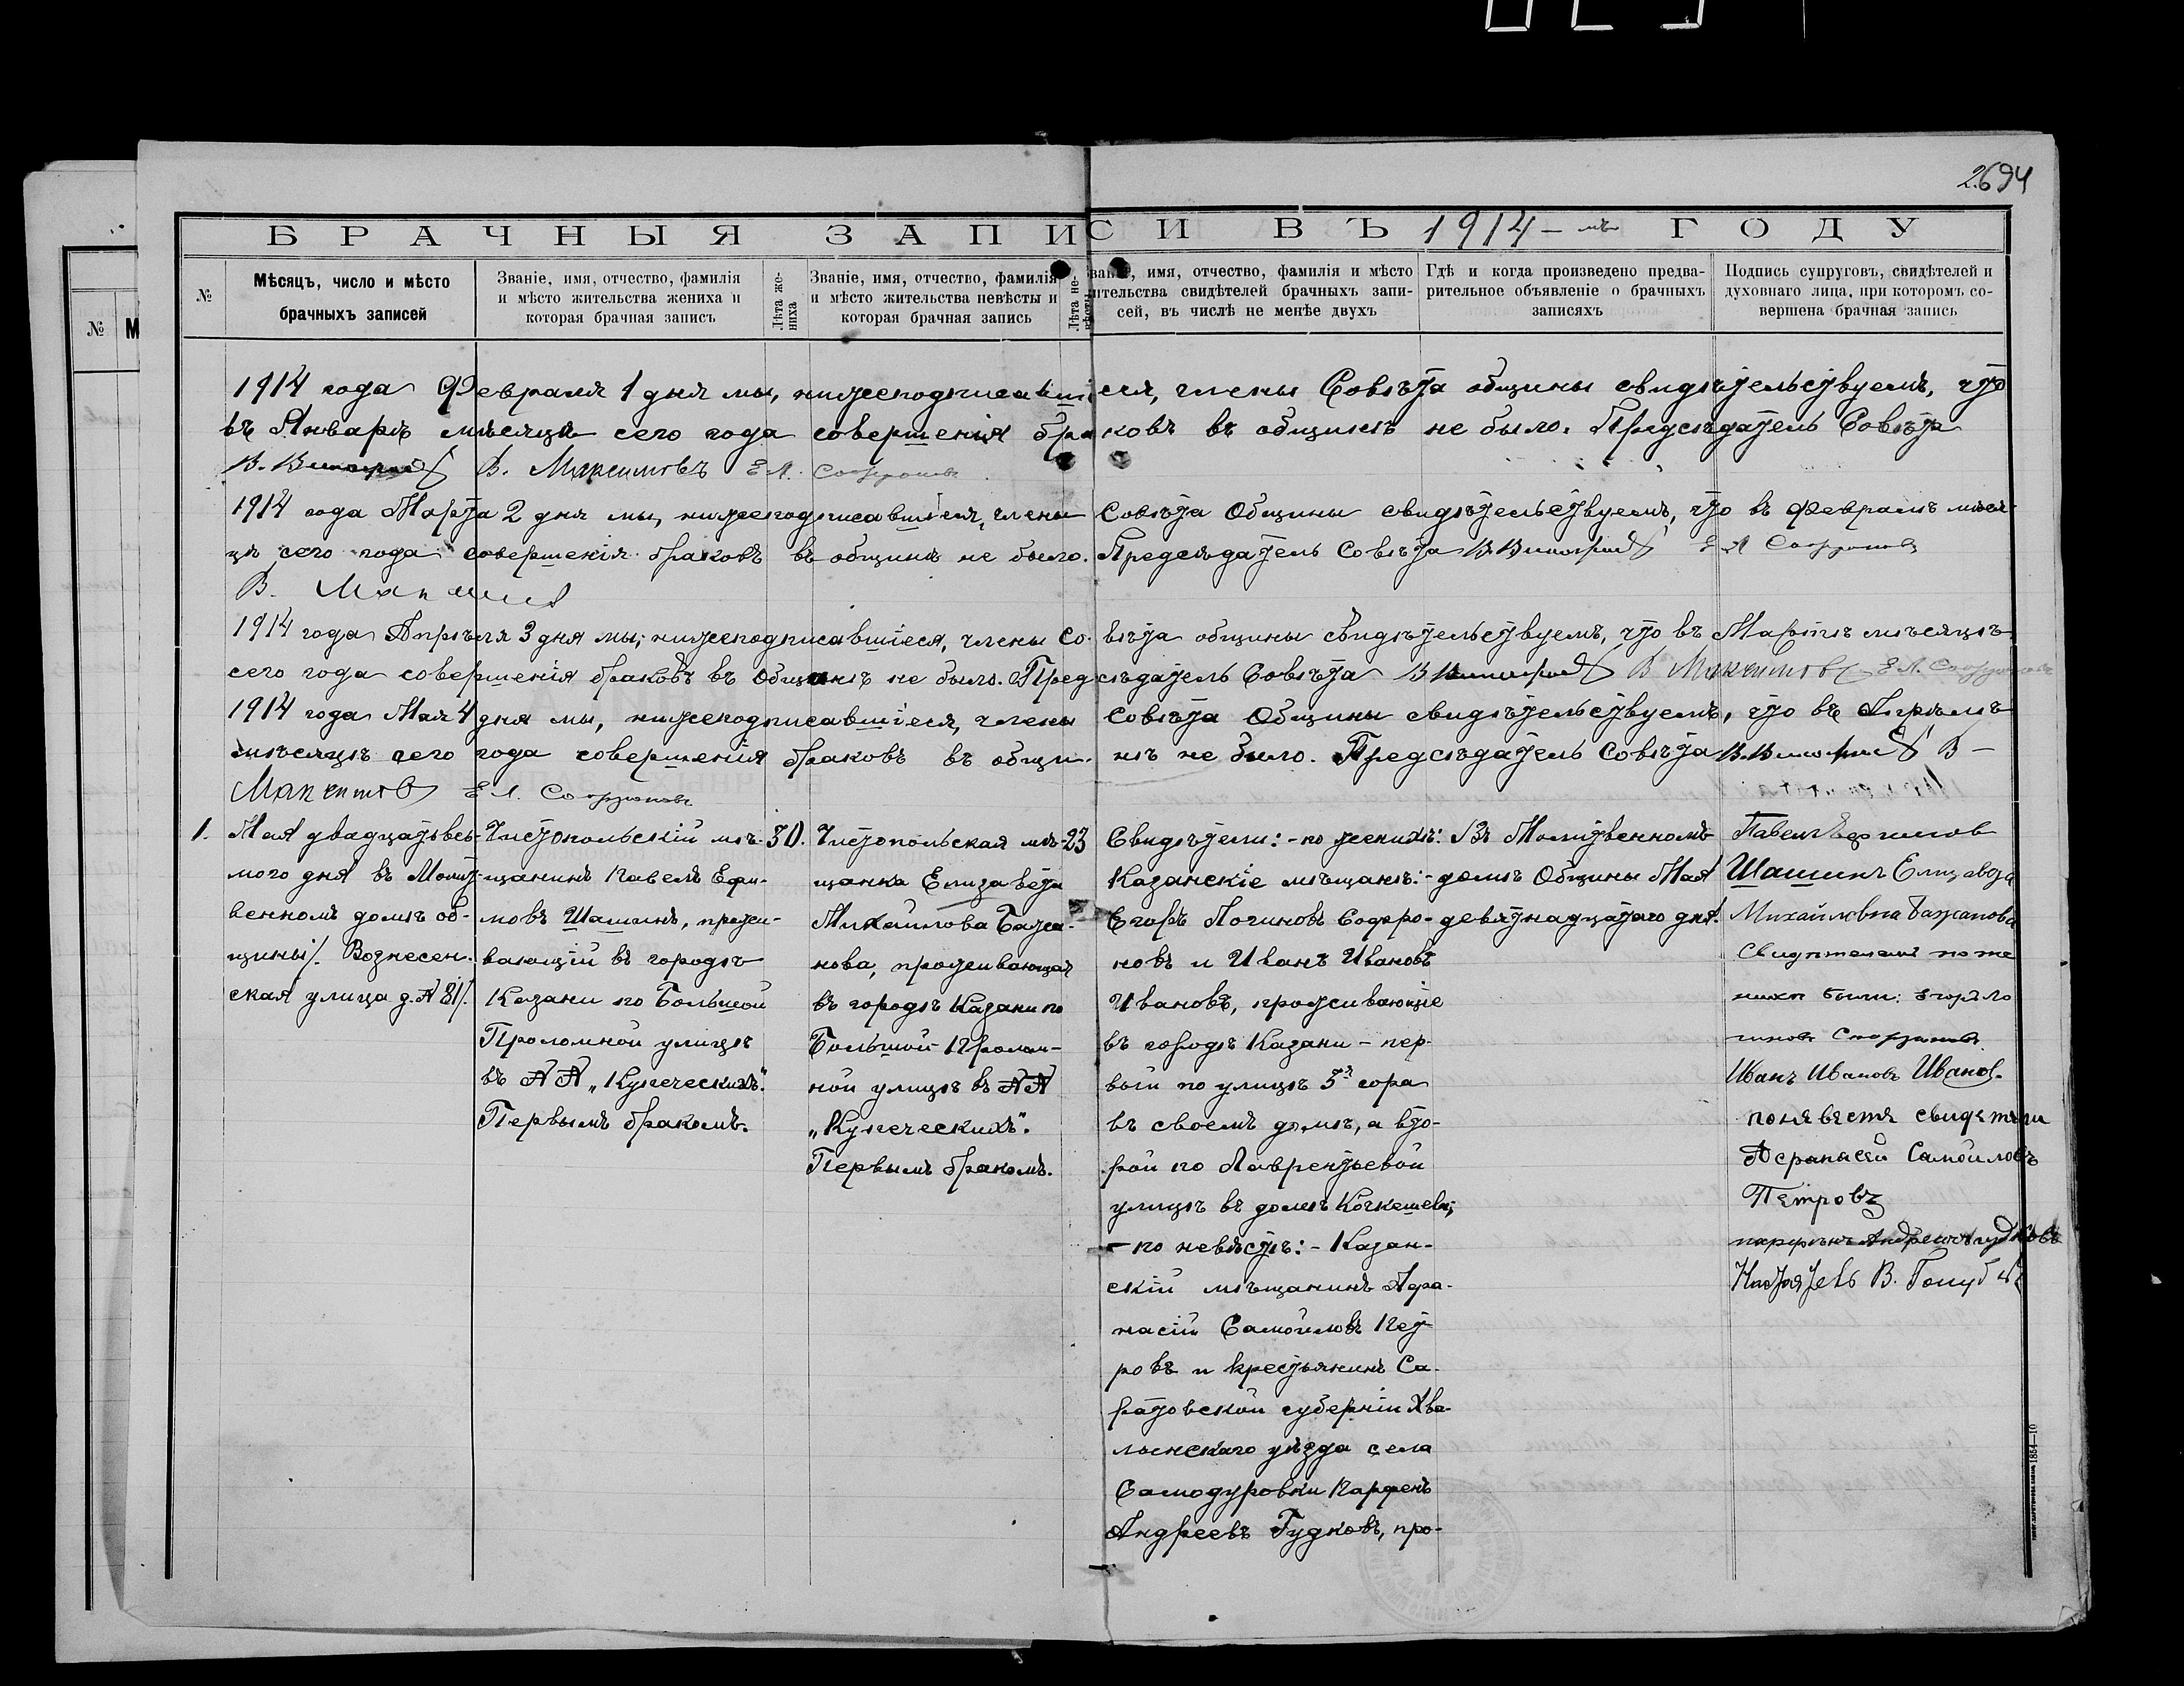 2694
БРАЧНЫЯ ЗАПИСИ ВЪ 1914-мъ ГОДУ
№
М
№
Мѣсяцъ, число и мѣсто
брачныхъ записей
Званіе, имя, отчество, фамилія
и мѣсто жительства жениха и
которая брачная запись
Лѣта же-
ниха
Званіе, имя, отчество, фамилія
и мѣсто жительства невѣсты и
которая брачная запись
Лѣта не-
вѣсты
Званіе, имя, отчество, фамилія и мѣсто
жительства свидѣтелей брачныхъ запи-
сей, въ числѣ не менѣе двухъ
Гдѣ и когда произведено предва-
рительное объявленіе о брачныхъ
записяхъ
Подпись супруговъ, свидѣтелей и
духовнаго лица, при которомъ со-
вершена брачная запись
1914 года Февраля 1 дня мы, нижеподписавшіеся, члены Совѣта общины свидѣтельствуемъ, что
въ Январѣ мѣсяцѣ сего года совершенія браковъ въ общинѣ не было. Предсѣдатель Совѣта
В. Максимовъ Е Л. Софроновъ
1914 года Марта 2 дня мы, нижеподписавшіеся, члены Совѣта Общины свидѣтельствуемъ, что въ Февралѣ мѣся-
цѣ сего года совершенія браковъ въ общинѣ не было. Предсѣдатель Совѣта Е Л Софроновъ
В. Максимов
1914 года Апрѣля 3 дня мы, нижеподписавшіеся, члены Со-вѣта общины свидѣтельствуемъ, что въ Мартѣ мѣсяцѣ
сего года совершенія браковъ въ Общинѣ не было. Предсѣдатель Совѣта В Максимовъ Е Л. Софроновъ
1914 года Мая 4 дня мы, нижеподписавшіеся, члены Совѣта Общины свидѣтельствуемъ, что въ Апрѣлѣ
мѣсяцѣ сего года совершенія браковъ въ общи-нѣ не было. Предсѣдатель Совѣта В-
Максимов Е Л. Софроновъ
1.
Мая двадцатьвсь-
мого дня въ Молит-
венномъ домѣ об-
щины/. Вознесен-
ская улица д. № 81/.
Чистопольскій мѣ-
щанинъ Павелъ Ефи-
мовъ Шашинъ, прожи-
вающій въ городѣ
Казани по Большой
Проломной улицѣ
въ №№ „Купеческихъ".
Первымъ бракомъ.
30.
Чистопольская мѣ-
щанка Елизавета
Михаилова Бажа-
нова, проживающая
въ городѣ Казани по
Большой Пролом-
ной улицѣ въ №№
„Купеческихъ".
Первымъ бракомъ.
23
Свидѣтели: - по женихѣ:
Казанскіе мѣщане: -
Егоръ Логиновъ Софро-
новъ и Иванъ Ивановъ
Ивановъ, проживающіе
въ городѣ Казани - пер-
вый по улицѣ 3я гора
въ своемъ домѣ, а вто-
рой по Лаврентьевой
улицѣ въ домѣ Кочкешева;
- по невѣстѣ: - Казан-
скій мѣщанинъ Афа-
насій Самойловъ Пет-
ровъ и крестьянинъ Са-
ратовской губерніи Хва-
лынскаго уѣзда села
Самодуровки Парфенъ
Андреевъ Гудковъ, про-
Въ Молитвенномъ
домѣ Общины Мая
девятнадцатаго дня.
Павелъ Ефимов
Шашинъ Елизавета
Михайловна Бажанова
Свидѣтелями по же
нихѣ были: Егоръ Ло
гиновъ Софроновъ.
Иванъ Ивановъ Иванов.
поневѣстѣ свидѣтели
Афанасей Самойловъ
Петровъ
парфенъ Андреевъ гудковъ
Настоятель В. Голубев
1854—10